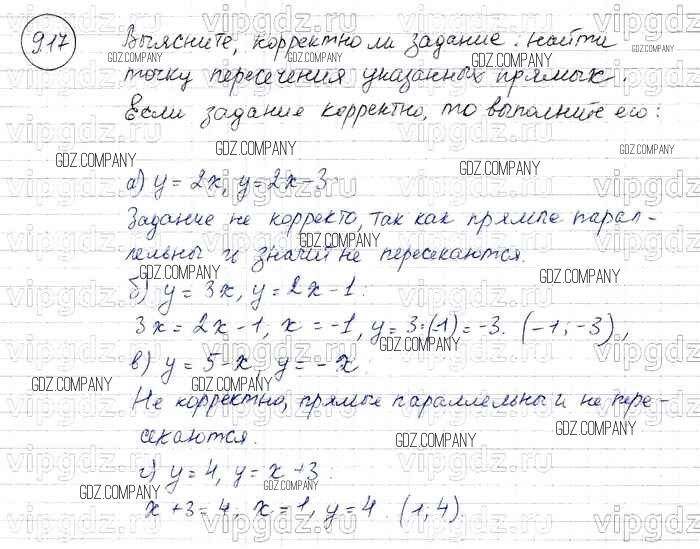 917
Выясните, корректно ли задание: найти
точку пересечения указанных прямых.
Если задание корректно, то выполните его:
а) y = 2x, y = 2x - 3:
Задание не корректо, так как прямые парал-
лельны и значит не пересекаются.
б) y = 3x, y = 2x - 1:
3x = 2x - 1, x = -1, y = 3·(-1) = -3. (-1; -3),
в) y = 5 - x, y = -x:
Не корректно, прямые параллельны и не пере-
секаются.
г) y = 4, y = x + 3:
x + 3 = 4, x = 1, y = 4. (1, 4).
GDZ.COMPANY
vipgdz.ru